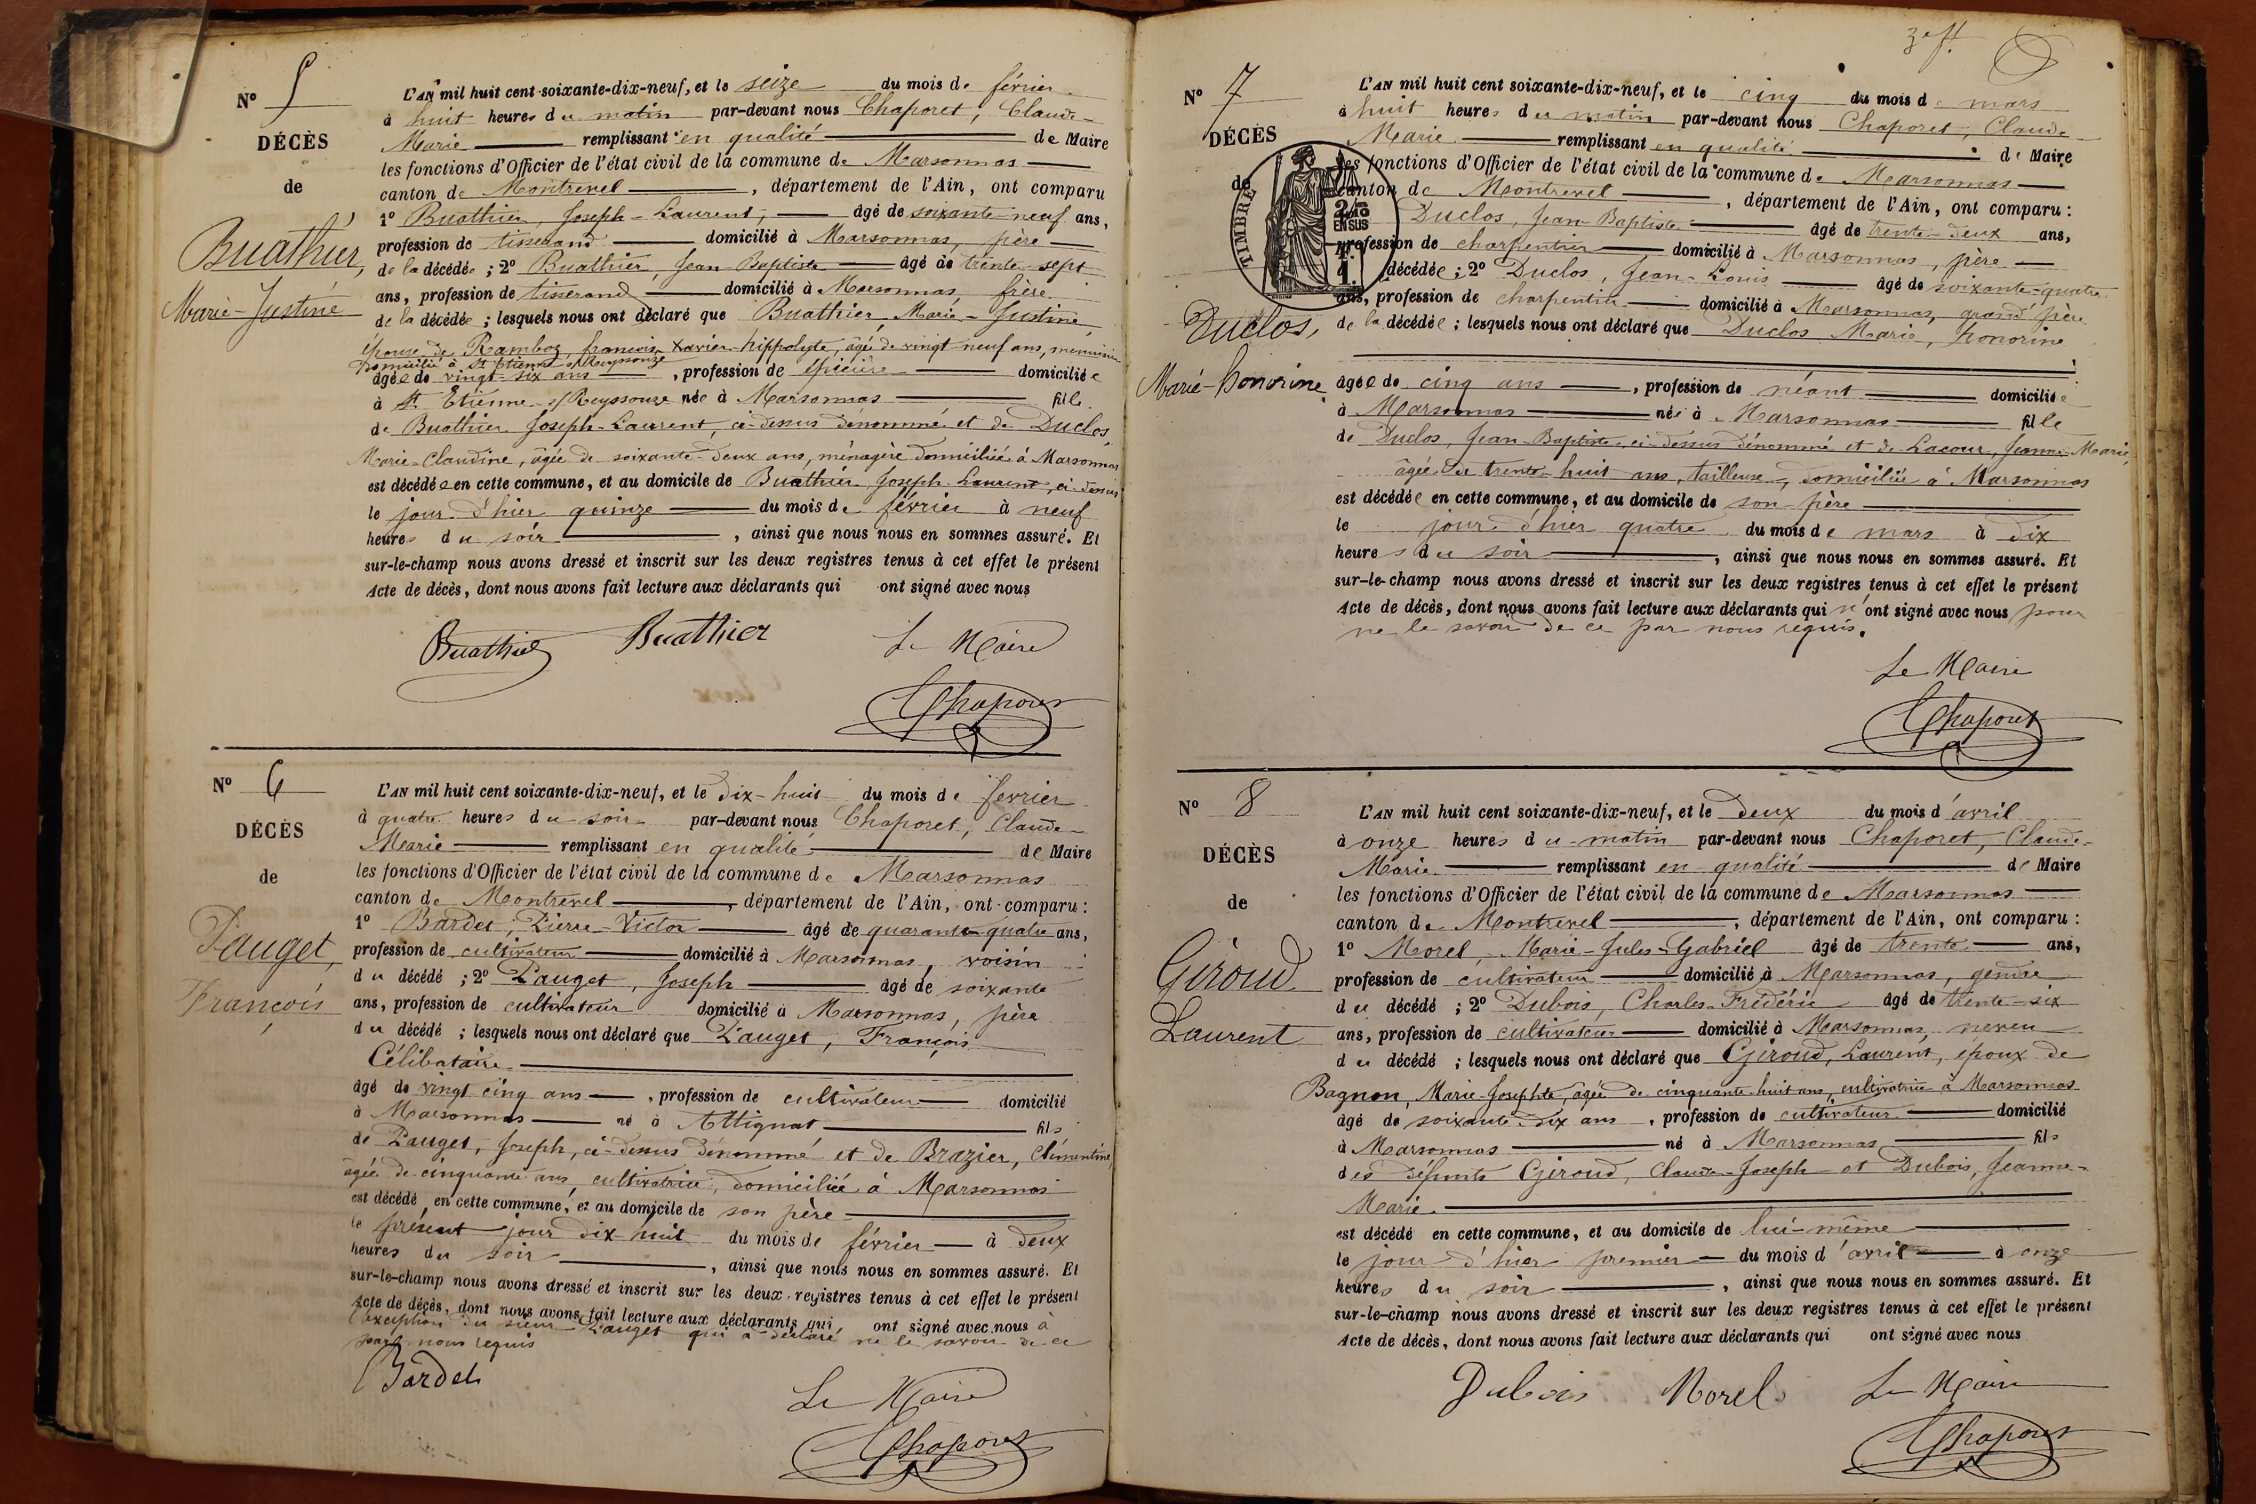 Nº 5
DÉCÈS
de
Buathier,
Marie-Justine
L'AN mil huit cent soixante-dix-neuf, et le seize du mois de février
à huit heures du matin par-devant nous Chaporet, Claude-
Marie remplissant en qualité de Maire
les fonctions d'Officier de l'état civil de la commune de Marsonnas
canton de Montrevel, département de l'Ain, ont comparu
1º Buathier, Joseph-Laurent, âgé de soixante-neuf ans,
profession de tisserand domicilié à Marsonnas, père
de la décédée ; 2º Buathier, Jean Baptiste âgé de trente-sept
ans, profession de tisserand domicilié à Marsonnas, frère
de la décédée ; lesquels nous ont déclaré que Buathier, Marie-Justine,
épouse de Ramboz, françois Xavier hippolyte, âgé de vingt-neuf ans, menuisier
domicilié à St Etienne s/Reyssouze
âgée de vingt-six ans, profession de épicière domiciliée
à St Etienne s/Reyssouze née à Marsonnas fille
de Buathier Joseph-Laurent, ci-dessus dénommé et de Duclos,
Marie-Claudine, âgée de soixante-deux ans, ménagère domiciliée à Marsonnas
est décédée en cette commune, et au domicile de Buathier, Joseph Laurent, ci-dessus
le jour d'hier quinze du mois de février à neuf
heures du soir, ainsi que nous nous en sommes assuré. Et
sur-le-champ nous avons dressé et inscrit sur les deux registres tenus à cet effet le présent
Acte de décès, dont nous avons fait lecture aux déclarants qui ont signé avec nous
Buathier Buathier Le Maire
Chaporet
Nº 6
DÉCÈS
de
Pauget,
François
L'AN mil huit cent soixante-dix-neuf, et le dix-huit du mois de février
à quatre heures du soir par-devant nous Chaporet, Claude-
Marie remplissant en qualité de Maire
les fonctions d'Officier de l'état civil de la commune de Marsonnas
canton de Montrevel, département de l'Ain, ont comparu :
1º Bardet, Pierre-Victor âgé de quarante-quatre ans,
profession de cultivateur domicilié à Marsonnas, voisin
du décédé ; 2º Pauget, Joseph âgé de soixante
ans, profession de cultivateur domicilié à Marsonnas, père
du décédé ; lesquels nous ont déclaré que Pauget, François
Célibataire
âgé de vingt cinq ans, profession de cultivateur domicilié
à Marsonnas né à Attignat fils
de Pauget, Joseph, ci-dessus dénommé et de Brazier, Clémentine,
âgée de cinquante ans, cultivatrice, domiciliée à Marsonnas
est décédé en cette commune, et au domicile de son père
le présent jour dix-huit du mois de février à deux
heures du soir, ainsi que nous nous en sommes assuré. Et
sur-le-champ nous avons dressé et inscrit sur les deux registres tenus à cet effet le présent
Acte de décès, dont nous avons fait lecture aux déclarants qui ont signé avec nous à
l'exception du sieur Pauget qui a déclaré ne le savoir de ce
par nous requis
Bardet
Le Maire
Chaporet
3e ft
Nº 7
DÉCÈS
de
Duclos,
Marie-honorine
TIMBRE
2/10
EN SUS
L'AN mil huit cent soixante-dix-neuf, et le cinq du mois de mars
à huit heures du matin par-devant nous Chaporet, Claude
Marie remplissant en qualité de Maire
les fonctions d'Officier de l'état civil de la commune de Marsonnas
canton de Montrevel, département de l'Ain, ont comparu :
Duclos, Jean-Baptiste âgé de trente-deux ans,
profession de charpentier domicilié à Marsonnas, père
décédée ; 2º Duclos, Jean-Louis âgé de soixante-quatre
ans, profession de charpentier domicilié à Marsonnas, grand'père
de la décédée ; lesquels nous ont déclaré que Duclos Marie, honorine
âgée de cinq ans, profession de néant domiciliée
à Marsonnas née à Marsonnas fille
de Duclos, Jean-Baptiste, ci-dessus dénommé et de Lacour, Jeanne-Marie,
âgée de trente-huit ans, tailleuse, domiciliée à Marsonnas
est décédée en cette commune, et au domicile de son père
le jour d'hier quatre du mois de mars à dix
heures du soir, ainsi que nous nous en sommes assuré. Et
sur-le-champ nous avons dressé et inscrit sur les deux registres tenus à cet effet le présent
Acte de décès, dont nous avons fait lecture aux déclarants qui n'ont signé avec nous pour
ne le savoir de ce par nous requis.
Le Maire
Chaporet
Nº 8
DÉCÈS
de
Giroud
Laurent
L'AN mil huit cent soixante-dix-neuf, et le deux du mois d'avril
à onze heures du matin par-devant nous Chaporet, Claude-
Marie remplissant en qualité de Maire
les fonctions d'Officier de l'état civil de la commune de Marsonnas
canton de Montrevel, département de l'Ain, ont comparu :
1º Morel, Marie-Jules-Gabriel âgé de trente ans,
profession de cultivateur domicilié à Marsonnas, gendre
du décédé ; 2º Dubois, Charles-Frédéric âgé de trente-six
ans, profession de cultivateur domicilié à Marsonnas, neveu
du décédé ; lesquels nous ont déclaré que Giroud, Laurent, époux de
Bagnon, Marie-Josephte, âgée de cinquante-huit ans, cultivatrice à Marsonnas
âgé de soixante-six ans, profession de cultivateur domicilié
à Marsonnas né à Marsonnas fils
des défunts Giroud, Claude-Joseph et Dubois, Jeanne-
Marie
est décédé en cette commune, et au domicile de lui-même
le jour d'hier premier du mois d'avril à onze
heures du soir, ainsi que nous nous en sommes assuré. Et
sur-le-champ nous avons dressé et inscrit sur les deux registres tenus à cet effet le présent
Acte de décès, dont nous avons fait lecture aux déclarants qui ont signé avec nous
Dubois Morel Le Maire
Chaporet